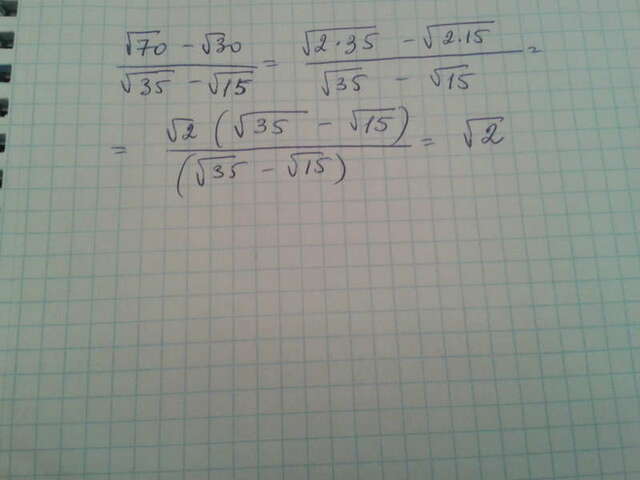 (√70 - √30)/(√35 - √15) = (√(2·35) - √(2·15))/(√35 - √15) =
= (√2 (√35 - √15))/((√35 - √15)) = √2